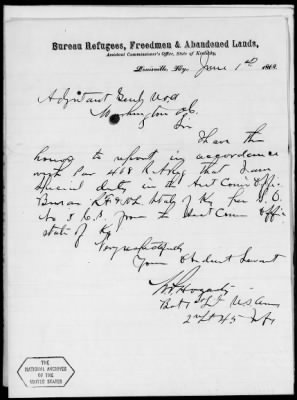 Bureau Refugees, Freedmen & Abandoned Lands,
Assistant Commissioner's Office, State of Kentucky,
Louisville, Ky., June 1st 186
Adjutant Genl USA
Washington
Sir
I have the
honor to report in accordance
with Par 468 that I am
special duty in the Asst Comr Offi
Bureau State of Ky per S.O.
No from the Asst Com Office
state of Ky
Very respectfully
Your Obedient Servant
Bvt US Army
2nd Lt 45 Inf
THE
NATIONAL ARCHIVES
OF THE
UNITED STATES